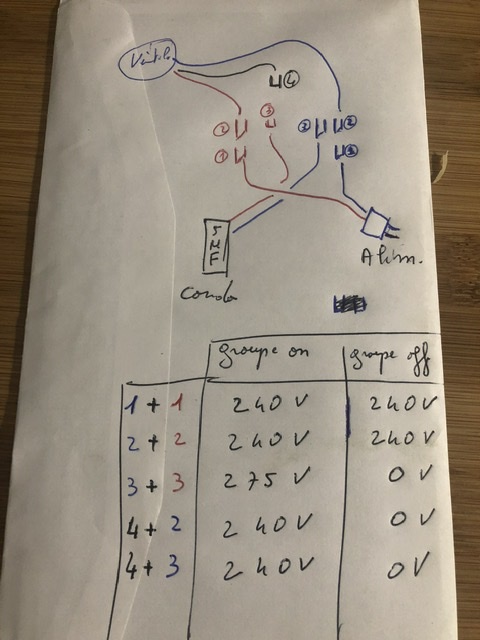 Ventilo
4
3
2
3 2
1
1
5
µ
F
Alim.
Condo
groupe on groupe off
1 + 1 240 V 240 V
2 + 2 240 V 240 V
3 + 3 275 V 0 V
4 + 2 240 V 0 V
4 + 3 240 V 0 V